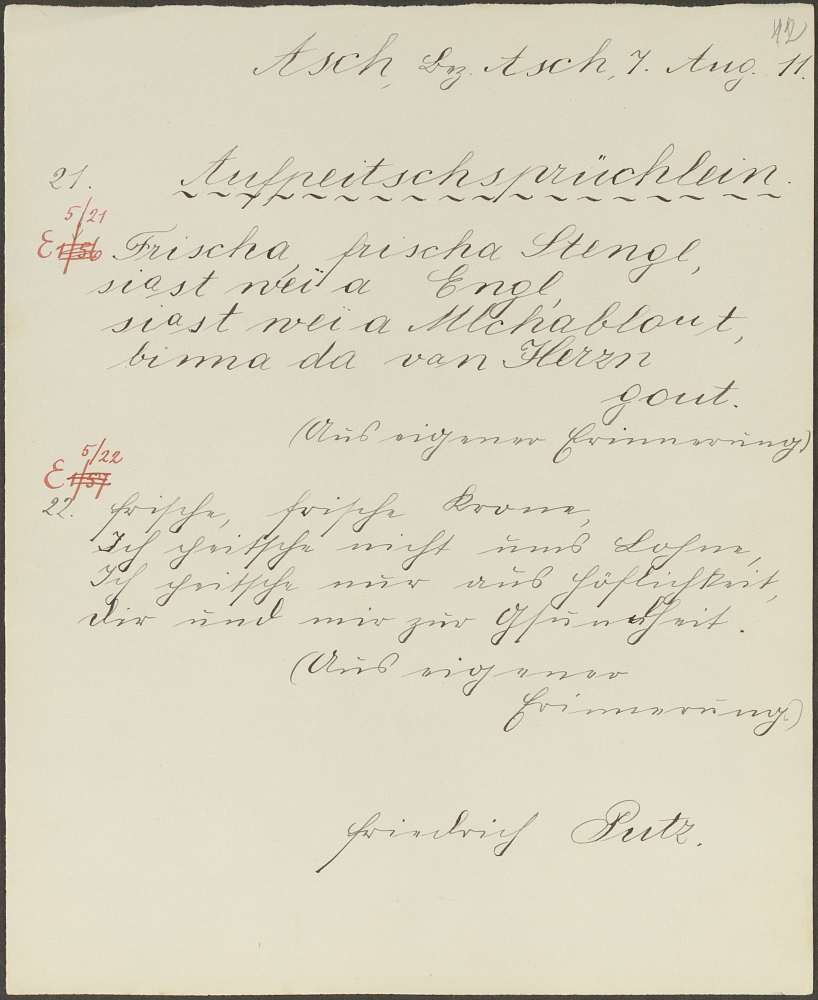 42
Asch, Bez. Asch, 7. Aug. 11.
21. Aufpeitschsprüchlein.
5/21
E 1/56 Frischa, frischa Stengl,
siast wëi a Engl,
siast wëi a Mlchablout,
binna da van Herzn
gout.
(Aus eigener Erinnerung)
5/22
E 1/57
22. Frische, frische Krone,
Ich peitsche nicht ums Lohne,
Ich peitsche nur aus Höflichkeit,
Dir und mir zur Gsundheit.
(Aus eigener
Erinnerung.)
Friedrich Putz.